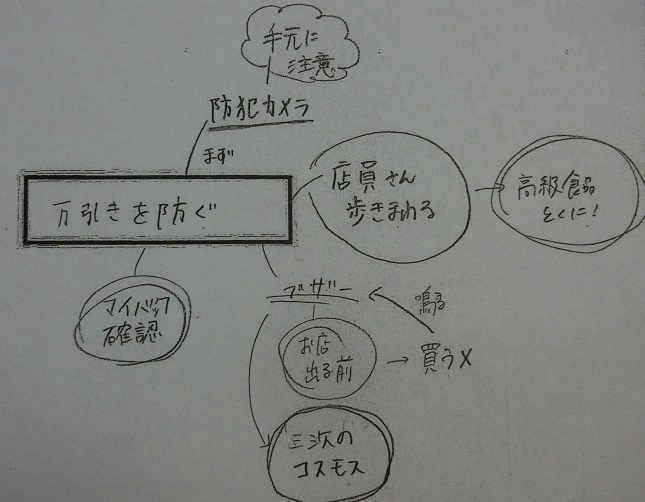 手元に
注意
防犯カメラ
まず
万引きを防ぐ
店員さん
歩きまわる
高級食品
とくに!
マイバック
確認
ブザー
鳴る
お店
出る前
買う×
三次の
コスモス